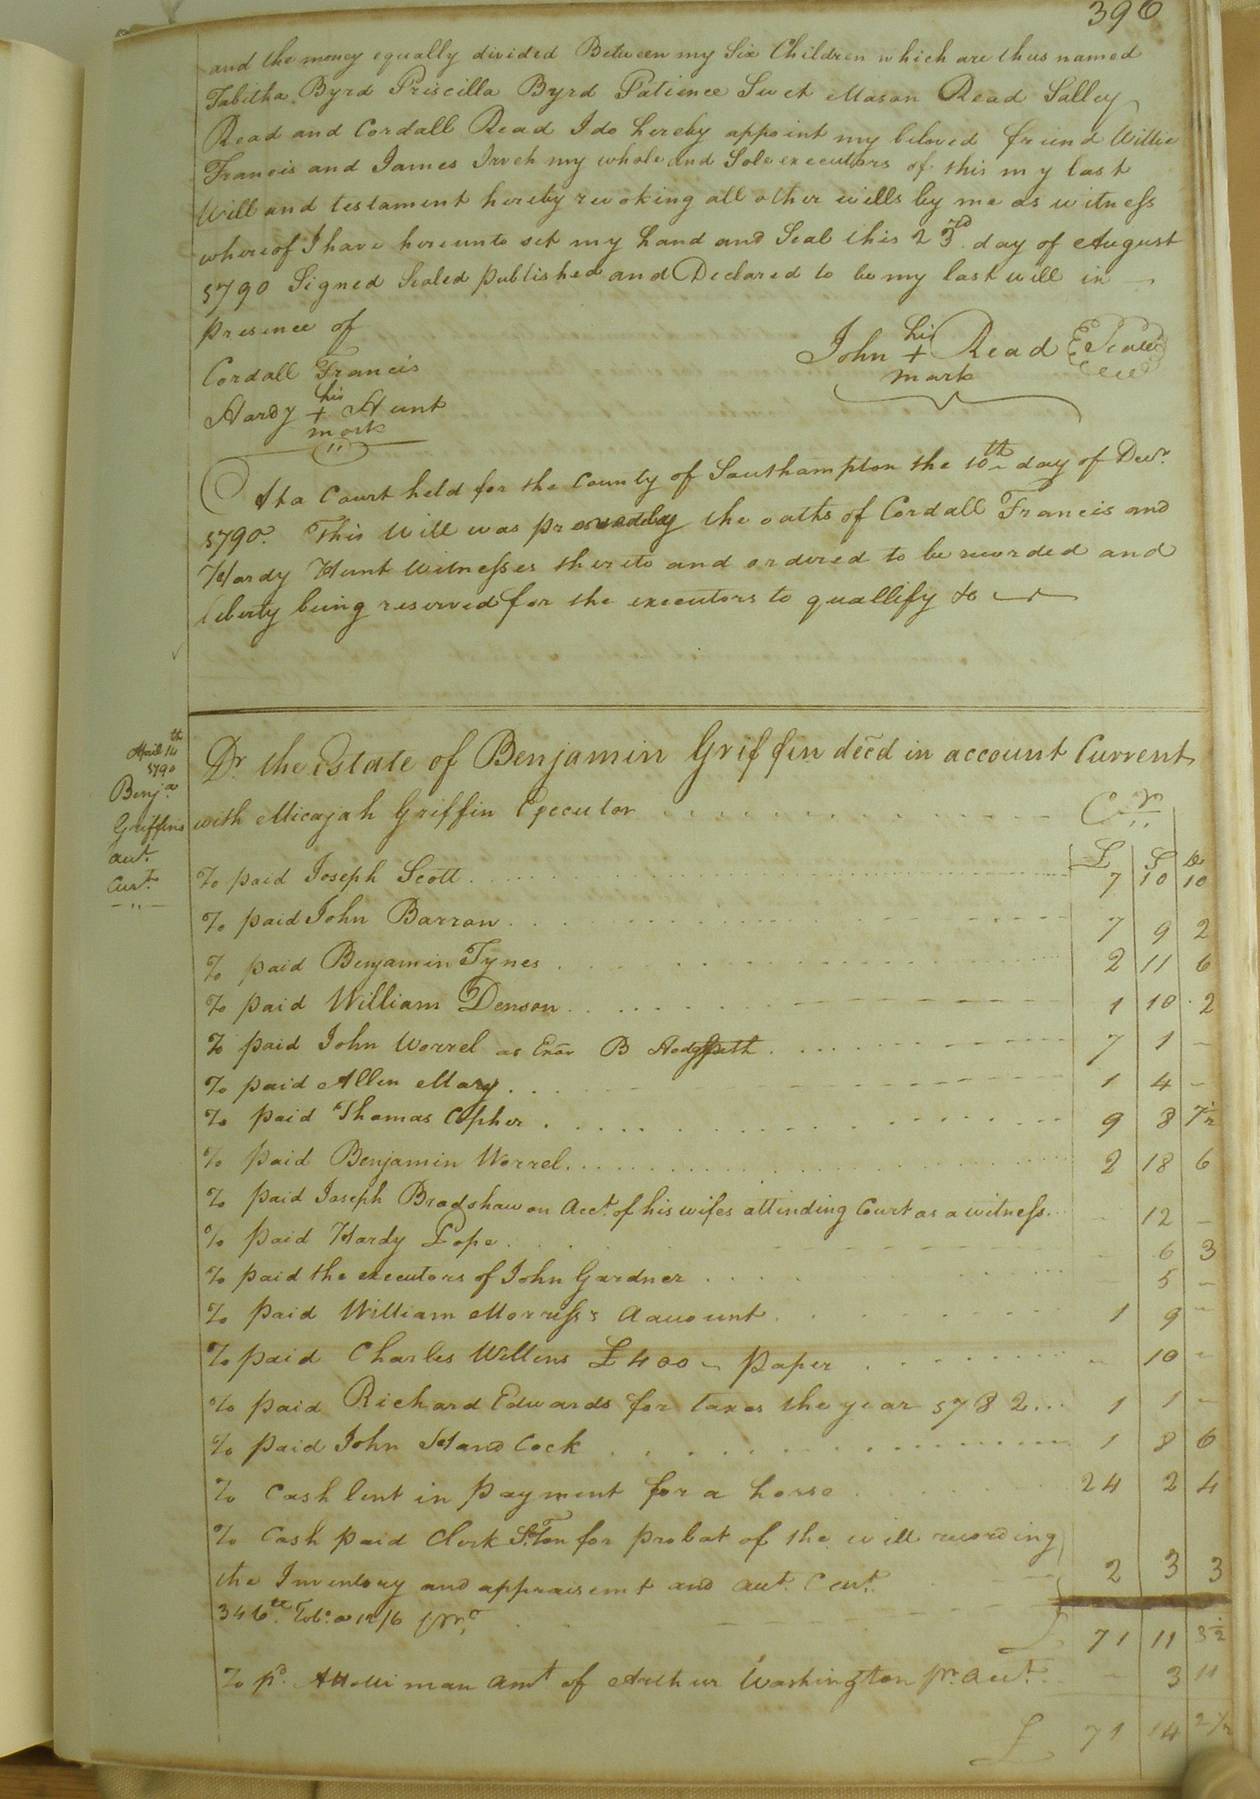 396
and the money equally divided Between my Six Children which are thus named
Tabitha Byrd Priscilla Byrd Patience Suet Mason Read Salley
Read and Cordall Read I do hereby appoint my beloved friend Willie
Francis and James my whole and Sole executors of this my last
Will and testament hereby revoking all other wills by me as witness
whereof I have hereunto set my hand and Seal this 23rd day of August
1790 Signed Sealed published and Declared to be my last will in
presence of
John his + mark Read Seal
Cordall Francis
Hardy his + mark Hunt
At a Court held for the County of Southampton the 10th day of Decr.
1790. This Will was proved by the oaths of Cordall Francis and
Hardy Hunt witnesses thereto and ordered to be recorded and
liberty being reserved for the executors to quallify &c
April 14th
1790
Benja.
Griffins
acct.
Curt.
Dr. the Estate of Benjamin Griffin decd in account Current
with Micajah Griffin Executor Cr
£ S D
To paid Joseph Scott 7 10 10
To paid John Barran 7 9 2
To paid Benjamin Tynes 2 11 6
To paid William Denson 1 10 2
To paid John Worrel as Exor B Hodgpeth 7 1 -
To paid Allen Mary 1 4 -
To paid Thomas Copher 9 8 7½
To paid Benjamin Worrel 2 18 6
To paid Joseph Bradshaw on Acct. of his wifes attending Court as a witness - 12 -
To paid Hardy Pope - 6 3
To paid the executors of John Gardner 5 -
To paid William Morriss's Account 1 9 -
To paid Charles Wellens £400 paper - 10 -
To paid Richard Edwards for taxes the year 1782 1 1 -
To paid John Hand Cock 1 8 6
To Cash lent in payment for a horse 24 2 4
To Cash paid Clerk S.Ton for probat of the will recording
the Inventory and appraisemt and act. Curt. 2 3 3
346 Tobo. a 12/6
71 11 3½
To pd. man amt of Arthur Washington pr. act. - 3 11
£ 71 14 2½